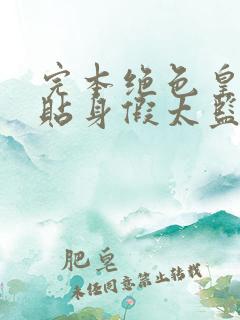 完本绝色皇
贴身假太监
肥皂
未经同意禁止转载